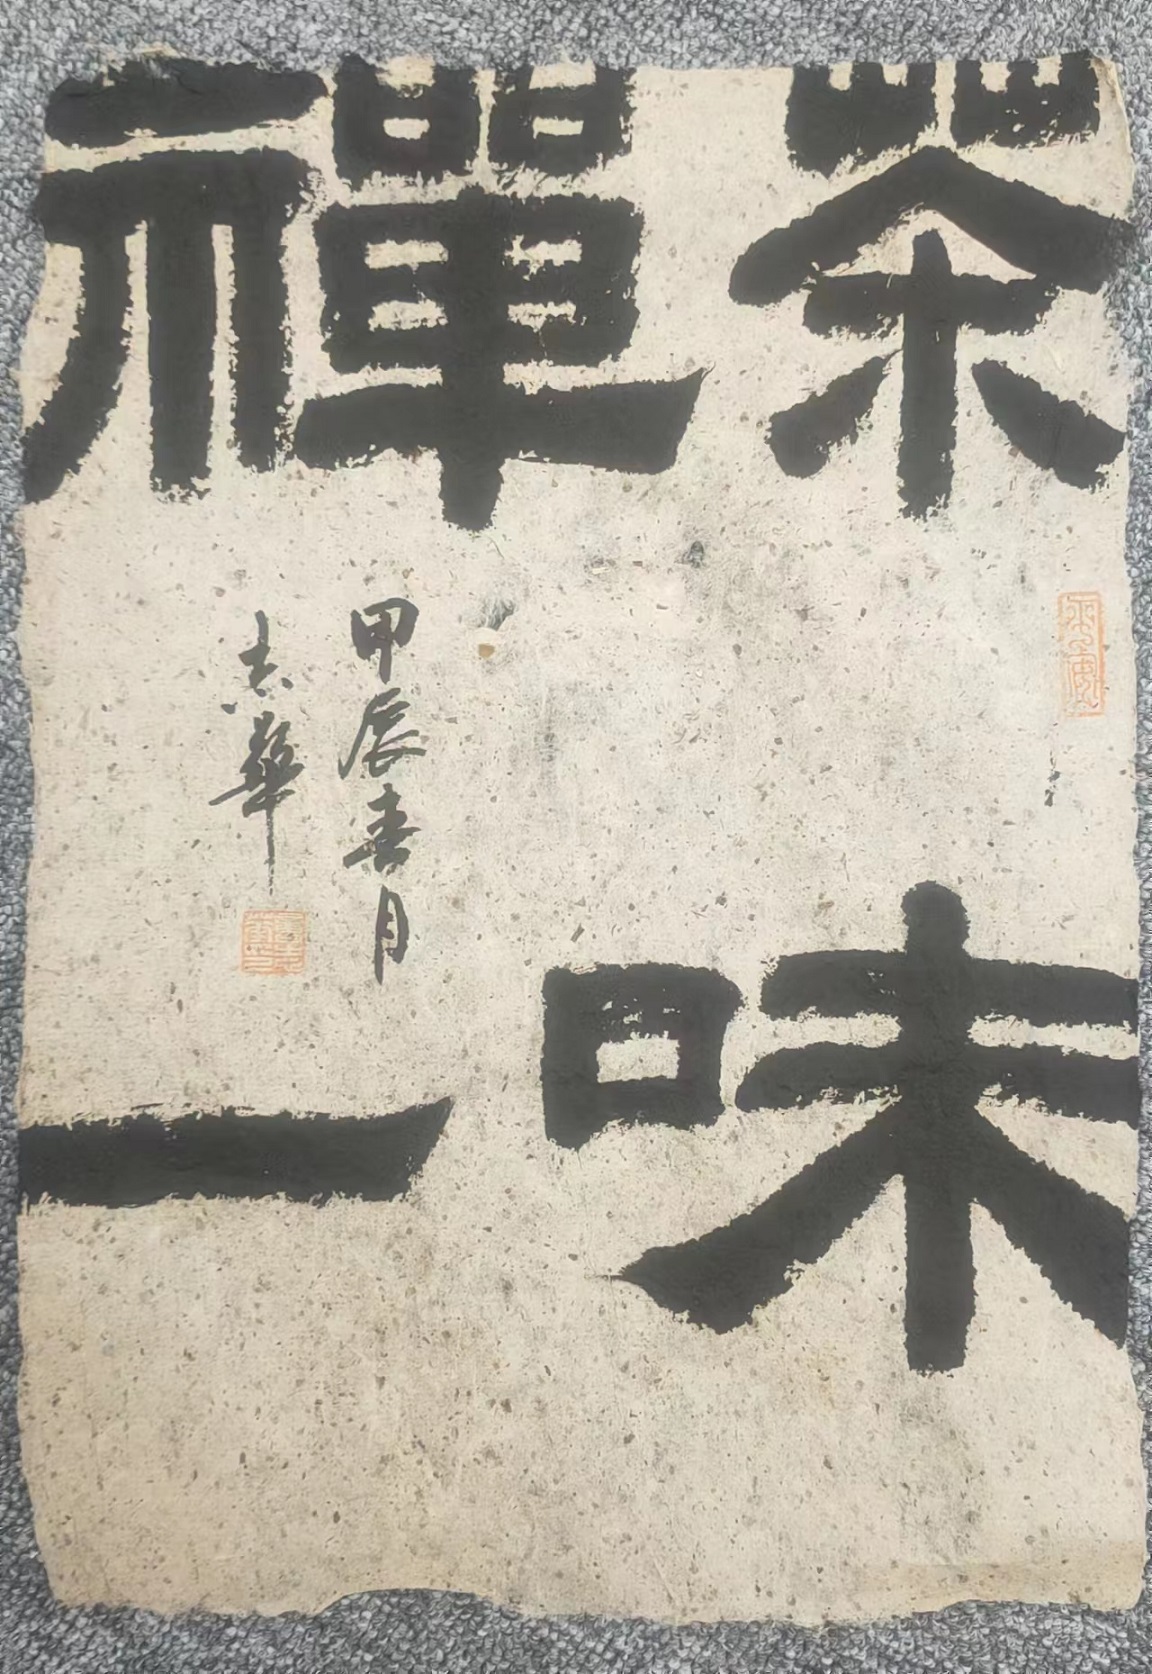 茶禪
一味
甲辰春月
志華
平安